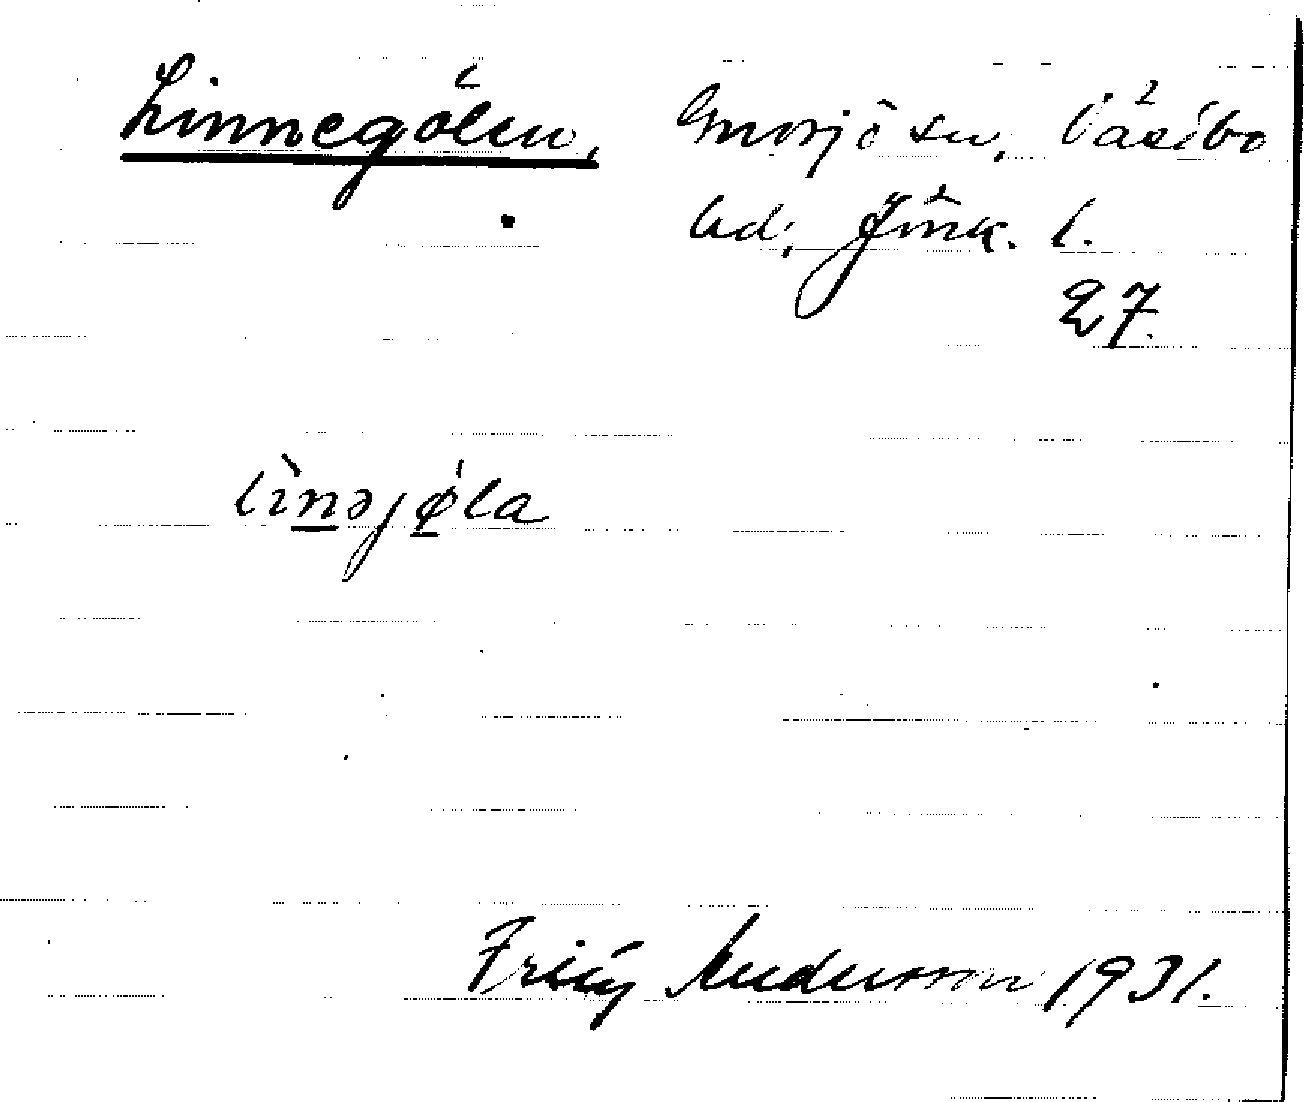 Linnegölen, Gnosjö sn, Västbo
hd, Jönk. l.
27.
lìnəjø̀la
Fritz Andersson 1931.